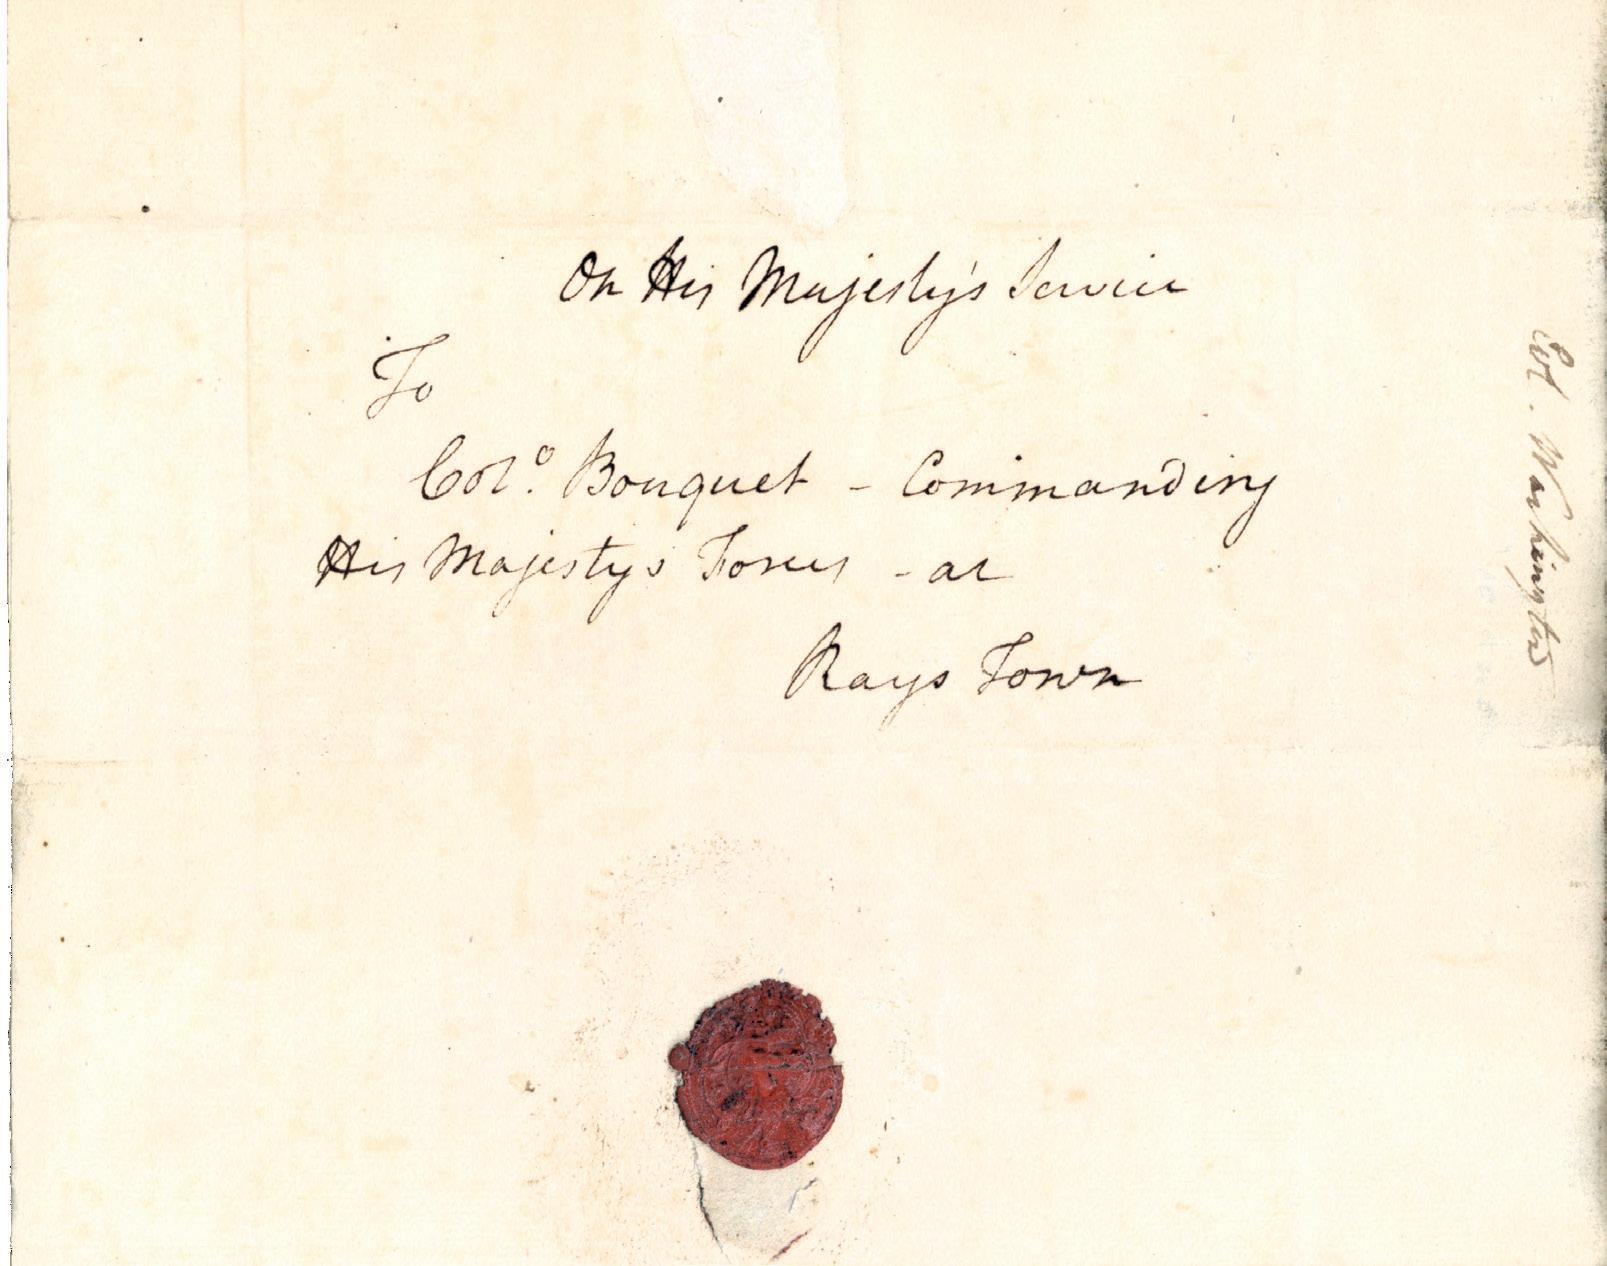 On His Majesty's Service
To
Colº. Bouquet - Commanding
His Majestys Forces - at
Rays Town
Col. Washington